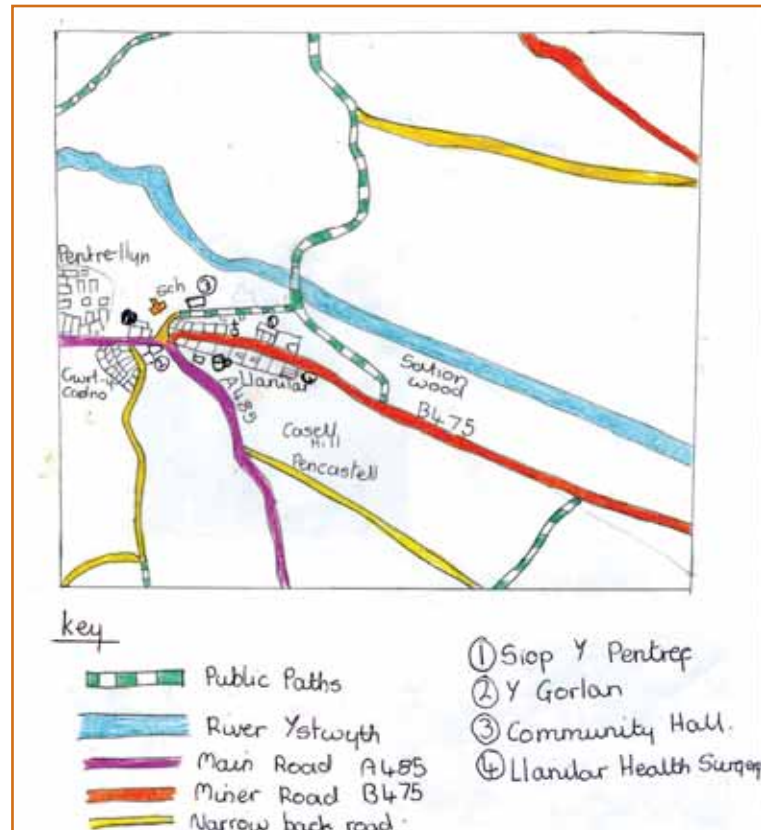 Pentre-llyn
sch
③
①
②
Cwrt-y
Cadno
Llanilar
A485
Sation
wood
B475
Casell
Hill
Pencastell
key
Public Paths
River Ystwyth
Main Road A485
Miner Road B475
Narrow back road
① Siop Y Pentref
② Y Gorlan
③ Community Hall.
④ Llanilar Health Surgery